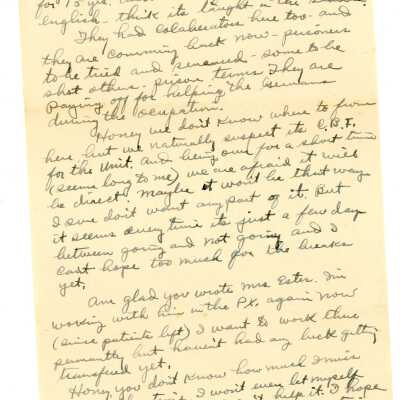 for 15 yrs.
english - think its taught in the
They had colaberators here too - and
they are comming back now - prisoners
to be tried and sentenced - some to be
shot others - prison terms They are
paying off for helping the Germans
during the occupation.
Honey we don't know where to from
here, but we naturally suspect its C.B.I.
for the Unit, and being over for a short time
(seems long to me) we are afraid it will
be direct. Maybe it wont be that way.
I sure don't want any part of it. But
it seems every time its just a few days
between going and not going and I
cant hope too much for the breaks
yet.
Am glad you wrote Mrs Ester. I'm
working with him in the P.X. again now
(since patients left) I want to work there
permantly but haven't had any luck getting
transfered yet.
Honey, you don't know how much I miss
I wont even let myself
it help it. I hope